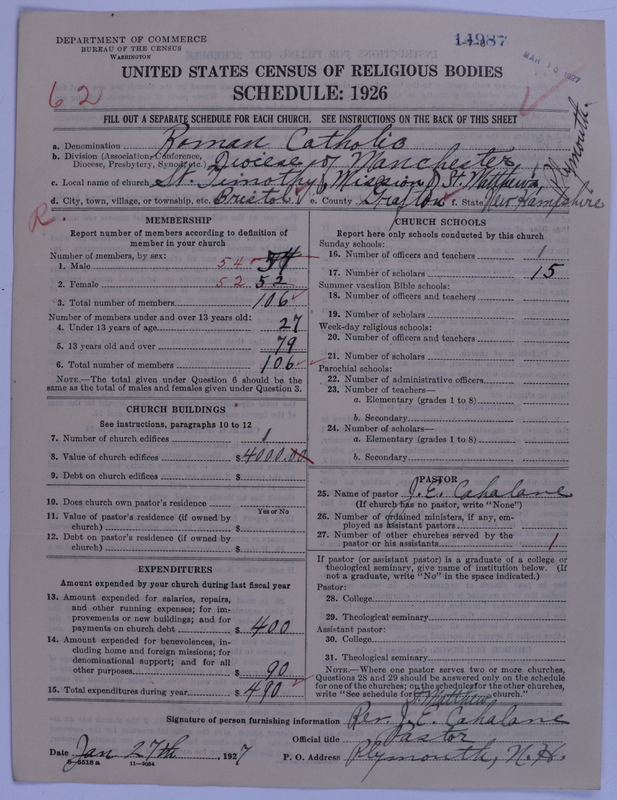 DEPARTMENT OF COMMERCE
BUREAU OF THE CENSUS
WASHINGTON
14987
1-7-8
MAR 10 1927
UNITED STATES CENSUS OF RELIGIOUS BODIES
SCHEDULE: 1926
62
FILL OUT A SEPARATE SCHEDULE FOR EACH CHURCH. SEE INSTRUCTIONS ON THE BACK OF THIS SHEET
a. Denomination Roman Catholic
b. Division (Association, Conference, Diocese, Presbytery, Synod, etc.) Diocese of Manchester
c. Local name of church St. Timothy, Mission of St. Matthews, Plymouth.
d. City, town, village, or township, etc. Bristol e. County Grafton f. State New Hampshire
R.
MEMBERSHIP
Report number of members according to definition of
member in your church
Number of members, by sex:
1. Male 54 54
2. Female 52 52
3. Total number of members 106
Number of members under and over 13 years old:
4. Under 13 years of age 27
5. 13 years old and over 79
6. Total number of members 106
NOTE.—The total given under Question 6 should be the
same as the total of males and females given under Question 3.
CHURCH BUILDINGS
See instructions, paragraphs 10 to 12
7. Number of church edifices 1
8. Value of church edifices $4000.00
9. Debt on church edifices $
10. Does church own pastor's residence
Yes or No
11. Value of pastor's residence (if owned by
church) $
12. Debt on pastor's residence (if owned by
church) $
EXPENDITURES
Amount expended by your church during last fiscal year
13. Amount expended for salaries, repairs,
and other running expenses; for im-
provements or new buildings; and for
payments on church debt $400
14. Amount expended for benevolences, in-
cluding home and foreign missions; for
denominational support; and for all
other purposes $90
15. Total expenditures during year $490
CHURCH SCHOOLS
Report here only schools conducted by this church
Sunday schools:
16. Number of officers and teachers 1
17. Number of scholars 15
Summer vacation Bible schools:
18. Number of officers and teachers
19. Number of scholars
Week-day religious schools:
20. Number of officers and teachers
21. Number of scholars
Parochial schools:
22. Number of administrative officers
23. Number of teachers—
a. Elementary (grades 1 to 8)
b. Secondary
24. Number of scholars—
a. Elementary (grades 1 to 8)
b. Secondary
PASTOR
25. Name of pastor J. E. Cahalane
(If church has no pastor, write "None")
26. Number of ordained ministers, if any, em-
ployed as assistant pastors
27. Number of other churches served by the
pastor or his assistants 1
If pastor (or assistant pastor) is a graduate of a college or
theological seminary, give name of institution below. (If
not a graduate, write "No" in the space indicated.)
Pastor:
28. College
29. Theological seminary
Assistant pastor:
30. College
31. Theological seminary
NOTE.—Where one pastor serves two or more churches,
Questions 28 and 29 should be answered only on the schedule
for one of the churches; on the schedules for the other churches,
write "See schedule for St. Matthew church."
Signature of person furnishing information Rev. J. E. Cahalane
Official title Pastor
Date Jan 27th, 1927 P. O. Address Plymouth, N. H.
8-5518 a 11-9034